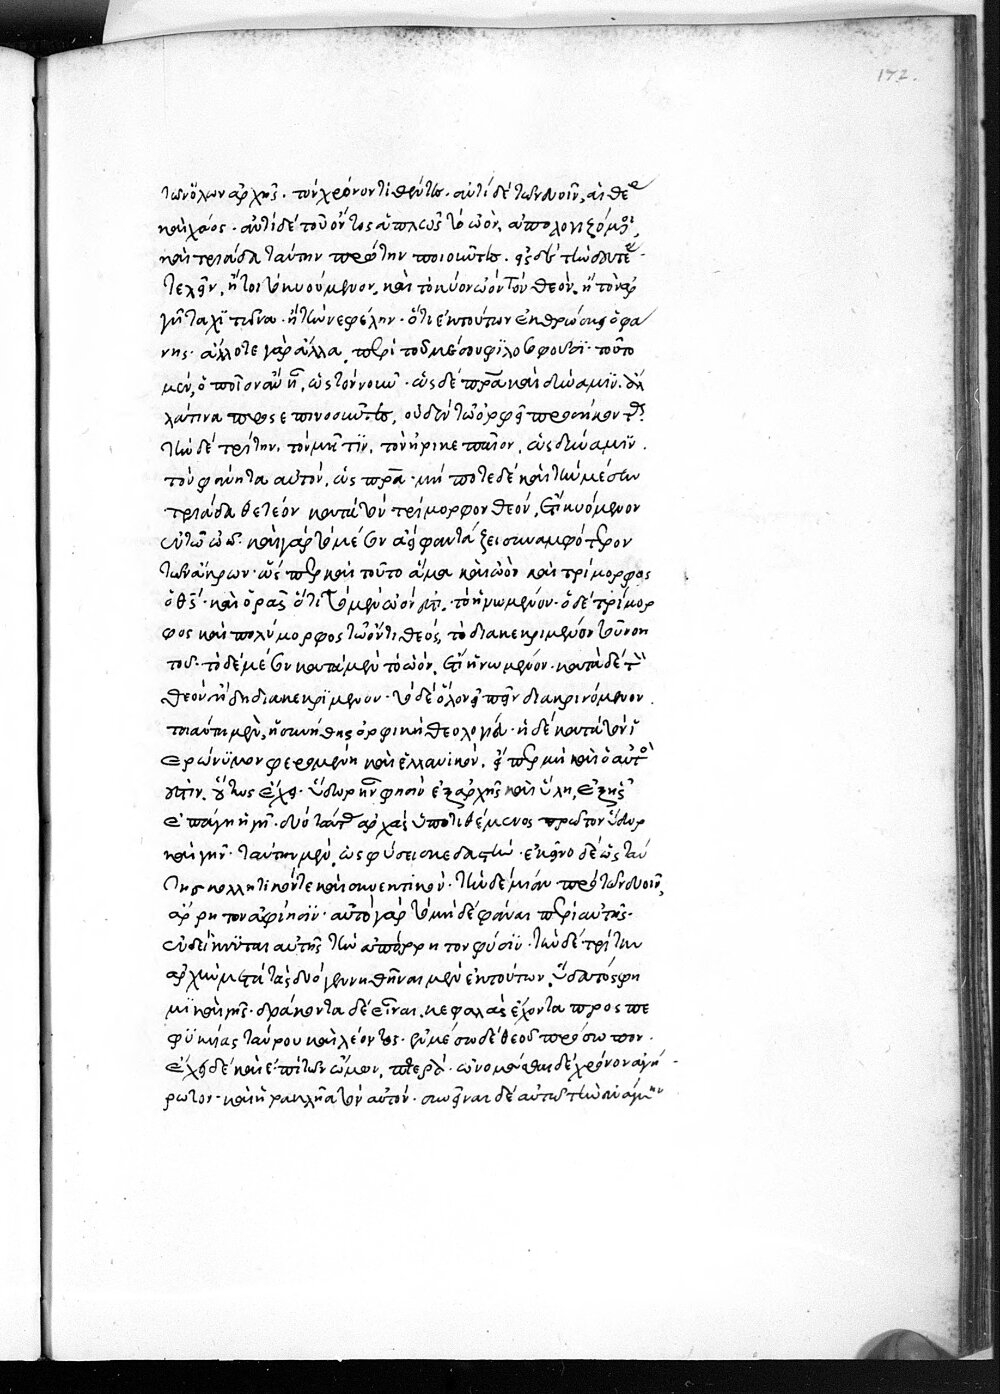 τῶν ὅλων ἀρχῆς· τὸν χρόνον τιθέντες· ἀντὶ δὲ τῶν δυοῖν, αἰθέρ
καὶ χάος· ἀντὶ δὲ τοῦ ὄντος ἁπλῶς τὸ ὠόν, ἀπολογιζόμενοι,
καὶ τριάδα ταύτην πρώτην ποιοῦντες· εἰς δὲ τὴν δευτέ
τελεῖν, ἤτοι τὸ κυούμενον, καὶ τὸ κύον ὠὸν τὸν θεόν, ἢ τὸν ἀρ
γῆτα χιτῶνα· ἢ τὴν νεφέλην· ὅτι ἐκ τούτων ἐκθρώσκει ὁ φά
νης· ἄλλοτε γὰρ ἄλλα, περὶ τοῦ μέσου φιλοσοφοῦσι· τοῦτο
μὲν, ὁποῖον ἂν ᾖ, ὡς τὸν νοῦν· ὡς δὲ πρα καὶ δύναμιν· ἄλ
λά τινα προσεπινοοῦντες, οὐδὲν τῷ ὀρφεῖ προσήκοντα
τὴν δὲ τρίτην, τὸν μῆτιν, τὸν ἠρικεπαῖον, ὡς δύναμιν.
τὸν φάνητα αὐτόν, ὡς πρα· μήποτε δὲ καὶ τὴν μέσην
τριάδα θετέον κατὰ τὸν τρίμορφον θεόν, ἔτι κυόμενον
ἐν τῷ ὠῷ· καὶ γὰρ τὸ μέσον ἀεὶ φαντάζει συναμφότερον
τῶν ἄκρων· ὥσπερ καὶ τοῦτο ἅμα καὶ ὠὸν καὶ τρίμορφος
ὁ θς· καὶ ὁρᾷς ὅτι τὸ μὲν ὠόν ἐστι, τὸ ἡνωμένον· ὁ δὲ τρίμορ
φος καὶ πολύμορφος τῷ ὄντι θεός, τὸ διακεκριμένον τοῦ νοη
τοῦ· τὸ δὲ μέσον κατὰ μὲν τὸ ὠόν, ἔτι ἡνωμένον· κατὰ δὲ τὸν
θεὸν ἤδη διακεκριμένον· τὸ δὲ ὅλον εἰπεῖν διακρινόμενον.
τοιαύτη μὲν, ἡ συνήθης ὀρφικὴ θεολογία· ἡ δὲ κατὰ τὸν ἱ
ερώνυμον φερομένη καὶ ἑλλάνικον, εἴπερ μὴ καὶ ὁ αὐτός
ἐστιν, οὕτως ἔχει· ὕδωρ ἦν φησὶν ἐξ ἀρχῆς καὶ ὕλη, ἐξ ἧς
ἐπάγη ἡ γῆ· δύο ταύτας ἀρχὰς ὑποτιθέμενος πρῶτον ὕδωρ
καὶ γῆν· ταύτην μὲν, ὡς φύσει σκεδαστὴν· ἐκεῖνο δὲ ὡς ταύ
της κολλητικόν τε καὶ συνεκτικόν· τὴν δὲ μίαν πρὸ τῶν δυοῖν,
ἄρρητον ἀφίησιν· αὐτὸ γὰρ τὸ μηδὲ φάναι περὶ αὐτῆς·
ἐνδείκνυται αὐτῆς τὴν ἀπόρρητον φύσιν· τὴν δὲ τρίτην
ἀρχὴν μετὰ τὰς δύο γεννηθῆναι μὲν ἐκ τούτων, ὕδατός φη
μι καὶ γῆς· δράκοντα δὲ εἶναι, κεφαλὰς ἔχοντα προσπε
φυκυίας ταύρου καὶ λέοντος· ἐν μέσῳ δὲ θεοῦ πρόσωπον·
ἔχειν δὲ καὶ ἐπὶ τῶν ὤμων, πτερά· ὠνομάσθαι δὲ χρόνον ἀγή
ρατον· καὶ ἡρακλῆα τὸν αὐτόν· συνεῖναι δὲ αὐτῷ τὴν ἀνάγκην